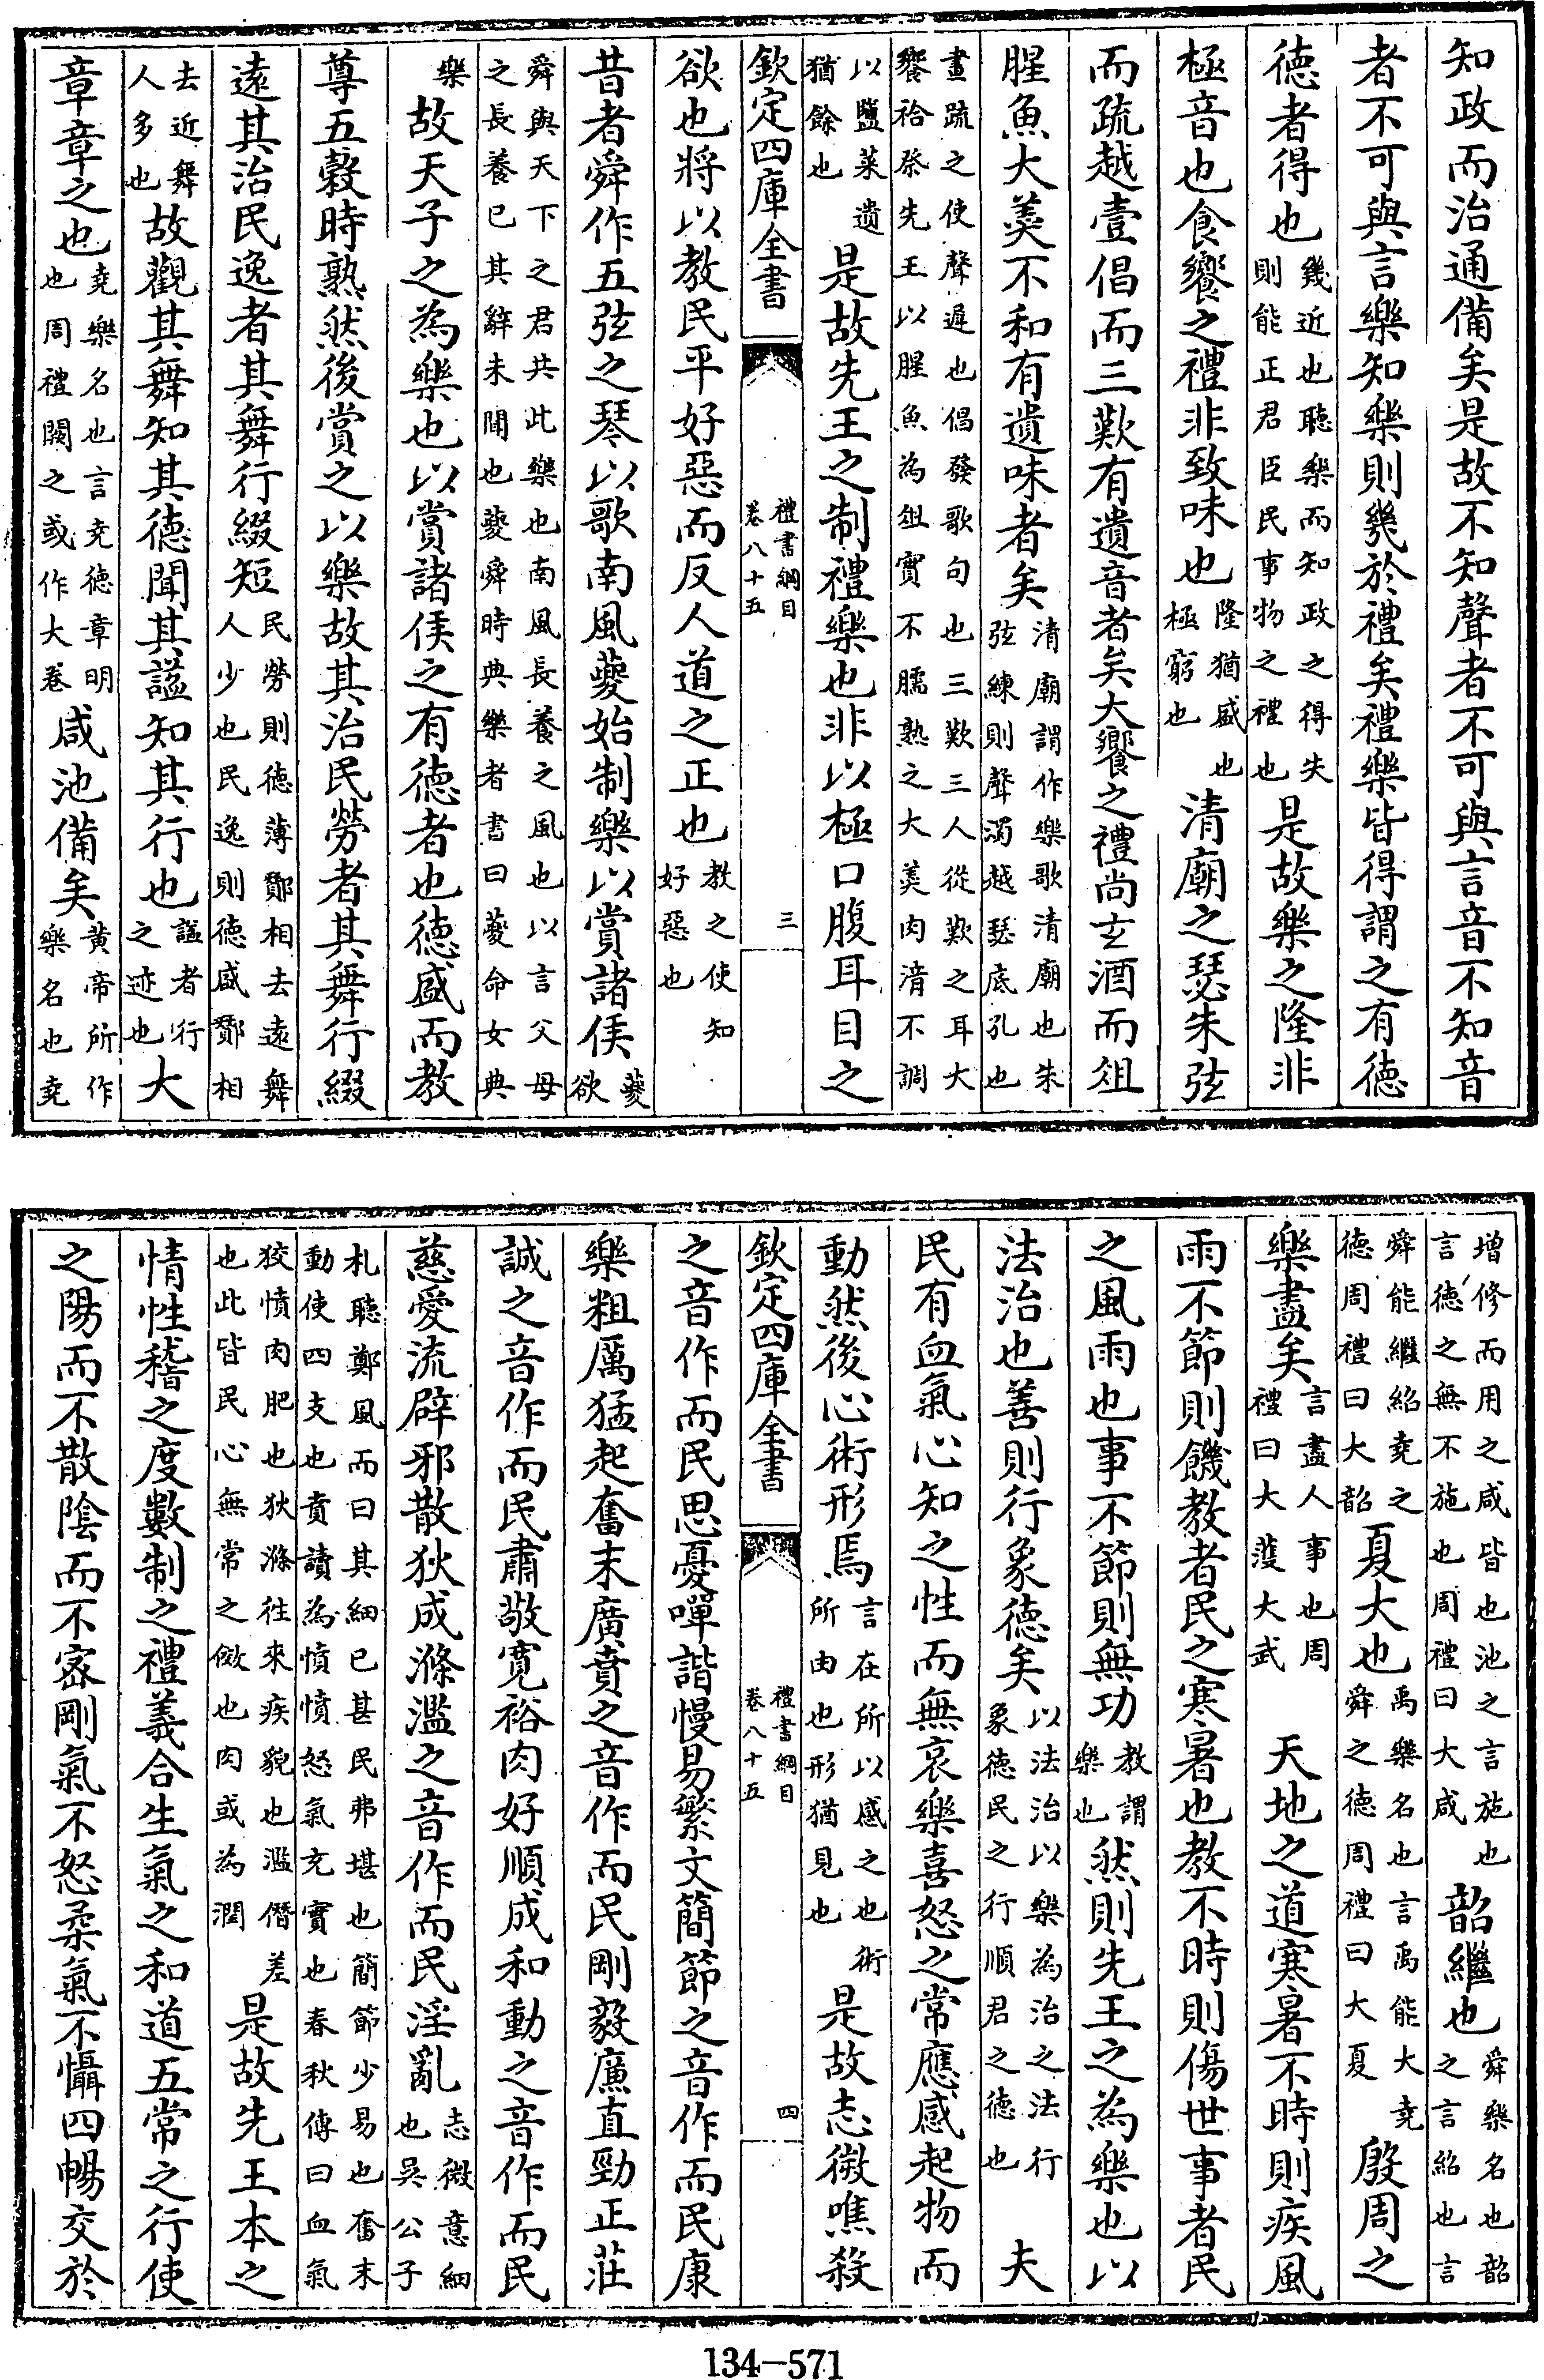 知政而治通備矣是故不知聲者不可與言音不知音
者不可與言樂知樂則幾於禮矣禮樂皆得謂之有德
德者得也幾近也聽樂而知政之得失則能正君臣民事物之禮也是故樂之隆非
極音也食饗之禮非致味也隆猶盛也極窮也清廟之瑟朱弦
而疏越壹倡而三歎有遺音者矣大饗之禮尚玄酒而俎
腥魚大羹不和有遺味者矣清廟謂作樂歌清廟也朱弦練則聲濁越瑟底孔也
畫疏之使聲遲也倡發歌句也三歎三人從歎之耳大饗祫祭先王以腥魚為俎實不臑熟之大羹肉湆不調
以鹽菜遺猶餘也是故先王之制禮樂也非以極口腹耳目之
欽定四庫全書 禮書綱目卷八十五 三
欲也將以教民平好惡而反人道之正也教之使知好惡也
昔者舜作五弦之琴以歌南風夔始制樂以賞諸侯夔欲
舜與天下之君共此樂也南風長養之風也以言父母之長養已其辭未聞也夔舜時典樂者書曰夔命女典
樂故天子之為樂也以賞諸侯之有德者也德盛而教
尊五穀時熟然後賞之以樂故其治民勞者其舞行綴
遠其治民逸者其舞行綴短民勞則德薄酇相去遠舞人少也民逸則德盛酇相
去近舞人多也故觀其舞知其德聞其謚知其行也謚者行之迹也大
章章之也堯樂名也言堯德章明也周禮闕之或作大卷咸池備矣黃帝所作樂名也堯
增修而用之咸皆也池之言施也言德之無不施也周禮曰大咸韶繼也舜樂名也韶之言紹也言
舜能繼紹堯之德周禮曰大韶夏大也禹樂名也言禹能大堯舜之德周禮曰大夏殷周之
樂盡矣言盡人事也周禮曰大濩大武 天地之道寒暑不時則疾風
雨不節則饑教者民之寒暑也教不時則傷世事者民
之風雨也事不節則無功教謂樂也然則先王之為樂也以
法治也善則行象德矣以法治以樂為治之法行象德民之行順君之德也 夫
民有血氣心知之性而無哀樂喜怒之常應感起物而
動然後心術形焉言在所以感之也術所由也形猶見也是故志微噍殺
欽定四庫全書 禮書綱目卷八十五 四
之音作而民思憂嘽諧慢易繁文簡節之音作而民康
樂粗厲猛起奮末廣賁之音作而民剛毅廉直勁正莊
誠之音作而民肅敬寬裕肉好順成和動之音作而民
慈愛流辟邪散狄成滌濫之音作而民淫亂志微意細也吳公子
札聽鄭風而曰其細已甚民弗堪也簡節少易也奮末動使四支也賁讀為憤憤怒氣充實也春秋傳曰血氣
狡憤肉肥也狄滌往來疾貌也濫僭差也此皆民心無常之傚也肉或為潤是故先王本之
情性稽之度數制之禮義合生氣之和道五常之行使
之陽而不散陰而不密剛氣不怒柔氣不懾四暢交於
134-571